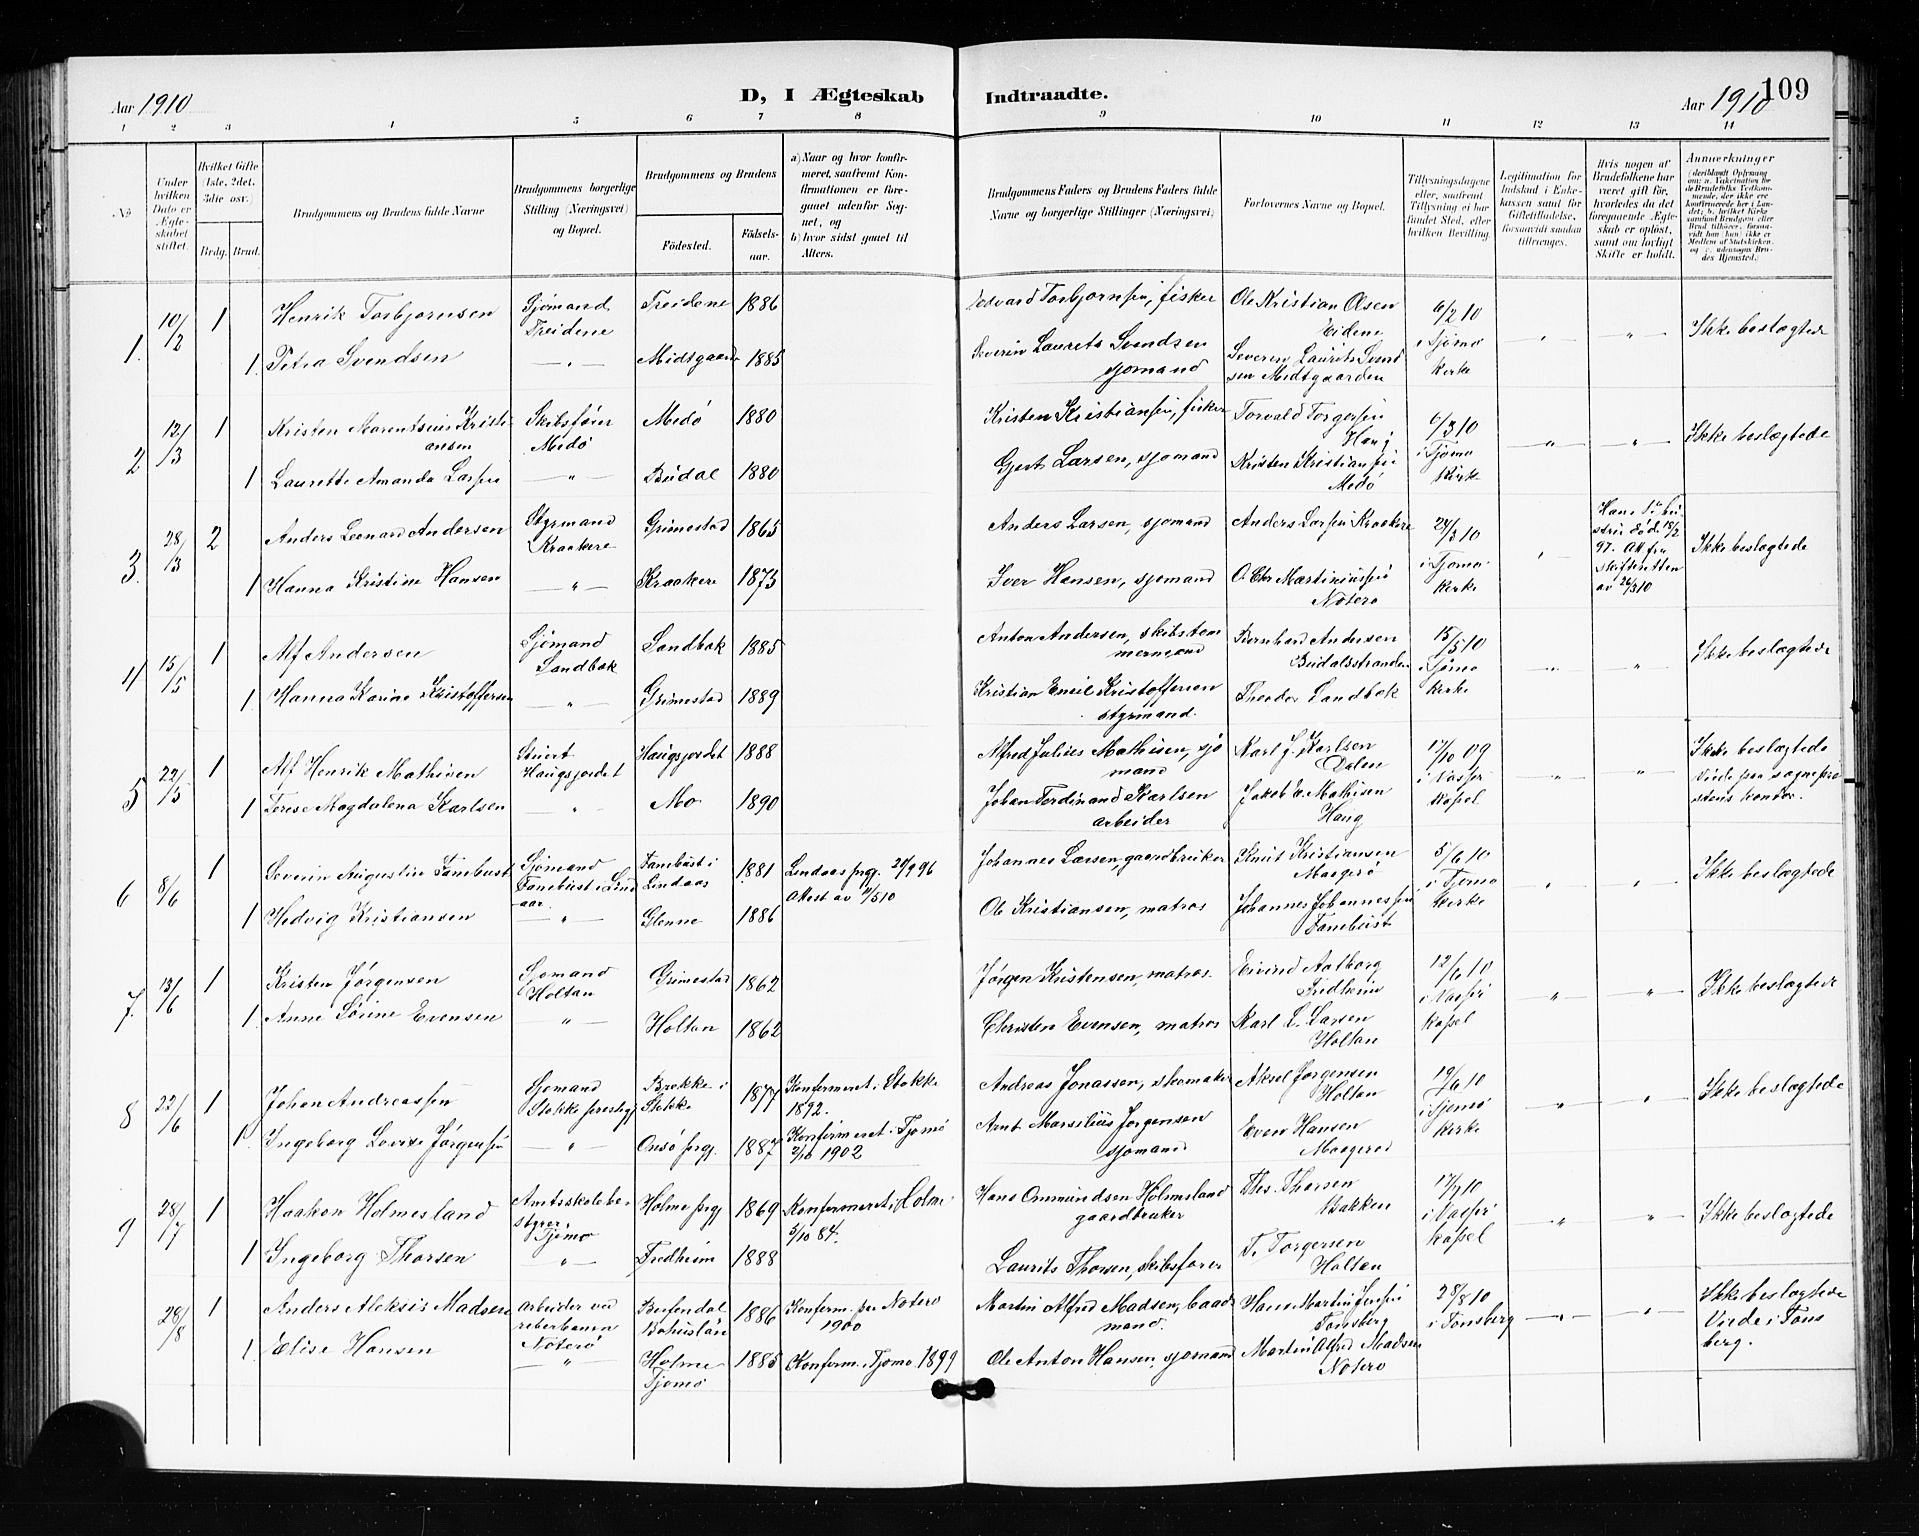 Aar 1910
D, I Ægteskab
Indtraadte.
Aar 1910
109
1 2 3 4 5 6 7 8 9 10 11 12 13 14
No
Under hvilken Dato er Ægteskabet stiftet.
Hvilket Gifte (1ste, 2det, 3die osv.)
Brdg. Brud.
Brudgommens og Brudens fulde Navne
Brudgommens borgerlige Stilling (Næringsvei) og Bopæl.
Brudgommens og Brudens
Fødested.
Fødselsaar.
a) Naar og hvor konfirmeret, saafremt Konfirmationen er foregaaet udenfor Sognet, og
b) hvor sidst gaaet til Alters.
Brudgommens Faders og Brudens Faders fulde Navne og borgerlige Stillinger (Næringsvei)
Forlovernes Navne og Bopæl.
Tillysningsdagene eller, saafremt Tillysning ei har fundet Sted, efter hvilken Bevilling.
Legitimation for Indskud i Enkekassen samt for Giftetilladelse, forsaavidt saadan tiltrænges.
Hvis nogen af Brudefolkene har været gift før, hvorledes da det foregaaende Ægteskab er opløst, samt om lovligt Skifte er holdt.
Anmerkninger
1. 10/2 1 Henrik Torbjørnsen Sjømand Treidene Treidene 1886 Edvard Torbjørnsen, fisker Ole Kristian Olsen Eidene 6/2 10 i Tjømø Kirke " " Ikke beslægtede
1 Petra Svendsen —"— Midtgaarden 1885 Severin Laurits Svendsen sjømand Severin Laurits Svendsen Midtgaarden
2 12/3 1 Kristen Marentsius Kristiansen Skibsfører Medø Medø 1880 Kristen Kristiansen, fisker Torvald Torgersen Haug 6/3 10 i Tjømø Kirke —"— —"— Ikke beslægtede
1 Laurette Amanda Larsen —"— Budal 1880 Gjert Larsen, sjømand Kristen Kristiansen Medø
3. 28/3 2 Anders Leonard Andersen Styrmand Kraakere Grimestad 1865 Anders Larsen, sjømand Anders Larsen Kraakere 24/3 10 i Tjømø Kirke " 97. Att fra skifteretten av 26/3 10 Ikke beslægtede
1 Hanna Kristine Hansen —"— Kraakere 1875 Iver Hansen, sjømand O. Chr Martiniussen Nøtterø
4 15/5 1 Alf Andersen Sjømand Sandbæk Sandbæk 1885 Anton Andersen, skibstømmermand Bernhard Andersen Budalsstranden 15/5 10 i Tjømø Kirke —"— " Ikke beslægtede
1 Hanna Karine Kristoffersen —"— Grimestad 1889 Kristian Emil Kristoffersen styrmand. Theodor Sandbæk
5 22/5 1 Alf Henrik Mathisen Stuert Haugsjordet Haugsjordet 1888 Alfred Julius Mathisen, sjømand Karl J. Karlsen Dalen 17/10 09 i Vasser kapel —"— —"— Ikke beslægtede Viede paa sogneprestens kontor.
1 Terese Magdalena Karlsen " Mo 1890 Johan Ferdinand Karlsen arbeider Jakob E. Mathisen Haug
6 8/6 1 Severin Augustin Fanebust Sjømand Fanebust i Lindaas Fanebust i Lindaas 1881 Lindaas prgj. 27/9 96 Attest av 11/5 10 Johannes Larsen, gaardbruker Knut Kristiansen Maagerø 5/6 10 i Tjømø Kirke " " Ikke beslægtede
1 Hedvig Kristiansen —"— Glenne 1886 Ole Kristiansen, matros Johannes Johannessen Fanebust
7. 13/6 1 Kristen Jørgensen Sjømand Holtan Grimestad 1862 Jørgen Kristensen, matros Eivind Aalborg Fredheim 12/6 10 i Vasser kapel —"— —"— Ikke beslægtede
1 Anne Sørine Evensen —"— Holtan 1862 Christen Evensen, matros Karl L. Larsen Holtan
8 22/6 1 Johan Andreassen Sjømand Stokke prestegj Brekke i Stokke 1877 Konfirmeret i Stokke 1892. Andreas Jonassen, skomaker Aksel Jørgensen Holtan 19/6 10 i Tjømø kirke " " Ikke beslægtede
1. Ingeborg Lovise Jørgensen —"— Onsø prgj. 1887 Konfirmeret i Tjømø 2/10 1902 Arnt Marsilius Jørgensen sjømand Even Hansen Maagerød
9 28/7 1 Haakon Holmesland Amtsskolebestyrer, Tjømø Holme prgj 1869 Konfirmeret i Holme 5/10 84. Hans Ommundsen Holmesland gaardbruker Ths. Thorsen Bakken 17/7 10 i Vasser kapel " —"— Ikke beslægtede
1 Ingeborg Thorsen —"— Fredheim 1888 Laurits Thorsen, skibsfører T. Torgersen Holtan
28/8 1 Anders Aleksis Madsen arbeider ved reberbanen Nøterø Bohuslän 1886 Konferm. paa Nøterø 1900 Martin Alfred Madsen, baadmand. Hans Martin Jensen Tønsberg 28/8 10 i Tønsberg —"— —"— Ikke beslægtede Viede i Tønsberg.
1 Elise Hansen —"— Holme Tjømø 1885 Konferm. i Tjømø 1899 Ole Anton Hansen, sjømand Martin Alfred Madsen Nøterø